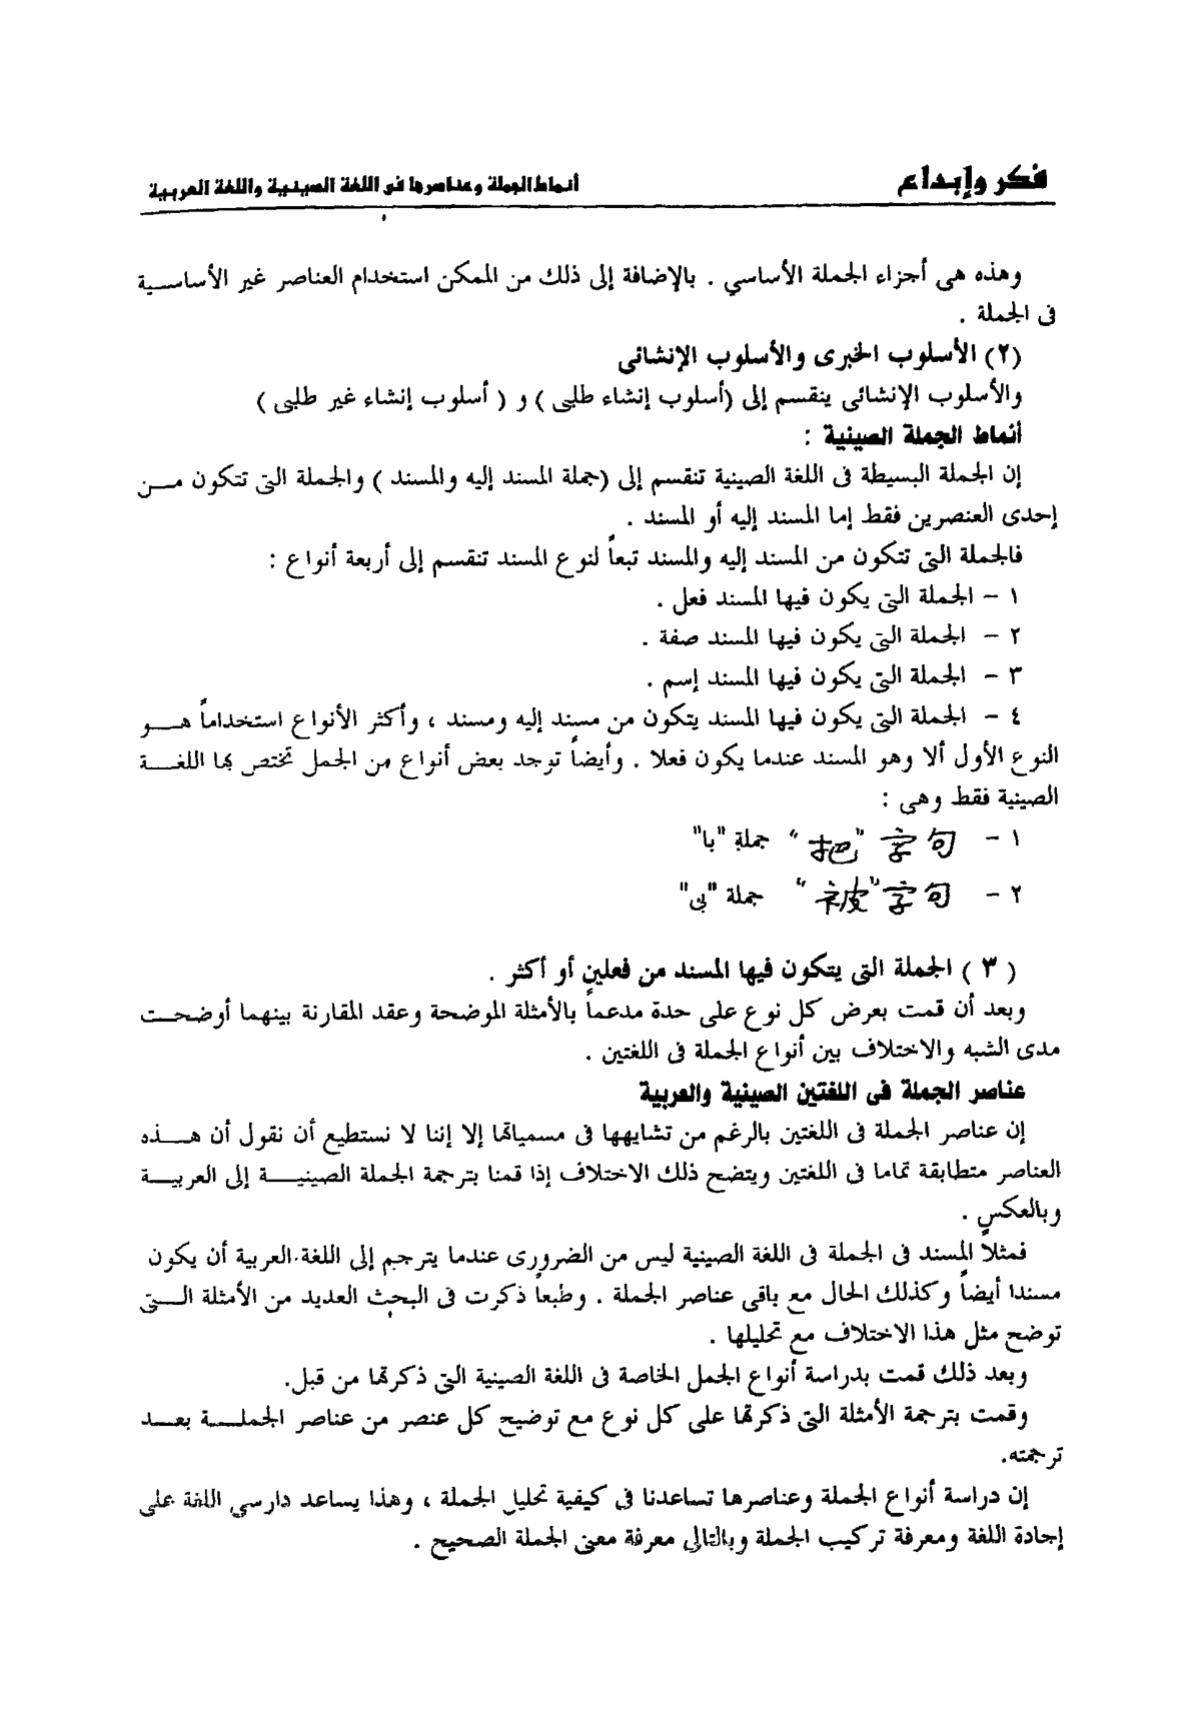 فكر وإبداع
أنماط الجملة وعناصرها فى اللغة الصينية واللغة العربية
وهذه هى أجزاء الجملة الأساسي . بالإضافة إلى ذلك من الممكن استخدام العناصر غير الأساسية
فى الجملة .
(٢) الأسلوب الخبرى والأسلوب الإنشائى
والأسلوب الإنشائى ينقسم إلى (أسلوب إنشاء طلبى ) و ( أسلوب إنشاء غير طلبى )
أنماط الجملة الصينية :
إن الجملة البسيطة فى اللغة الصينية تنقسم إلى (جملة المسند إليه والمسند ) والجملة التى تتكون من
إحدى العنصرين فقط إما المسند إليه أو المسند .
فالجملة التى تتكون من المسند إليه والمسند تبعاً لنوع المسند تنقسم إلى أربعة أنواع :
١ – الجملة التى يكون فيها المسند فعل .
٢ – الجملة التى يكون فيها المسند صفة .
٣ – الجملة التى يكون فيها المسند إسم .
٤ – الجملة التى يكون فيها المسند يتكون من مسند إليه ومسند ، وأكثر الأنواع استخداماً هو
النوع الأول ألا وهو المسند عندما يكون فعلا . وأيضاً توجد بعض أنواع من الجمل تختص بها اللغة
الصينية فقط وهى :
١ – “把”字句 جملة "با"
٢ – “被”字句 جملة "بى"
( ٣ ) الجملة التى يتكون فيها المسند من فعلين أو أكثر .
وبعد أن قمت بعرض كل نوع على حدة مدعماً بالأمثلة الموضحة وعقد المقارنة بينهما أوضحت
مدى الشبه والاختلاف بين أنواع الجملة فى اللغتين .
عناصر الجملة فى اللغتين الصينية والعربية
إن عناصر الجملة فى اللغتين بالرغم من تشابهها فى مسمياتها إلا إننا لا نستطيع أن نقول أن هذه
العناصر متطابقة تماما فى اللغتين ويتضح ذلك الاختلاف إذا قمنا بترجمة الجملة الصينية إلى العربية
وبالعكس .
فمثلاً المسند فى الجملة فى اللغة الصينية ليس من الضرورى عندما يترجم إلى اللغة العربية أن يكون
مسندا أيضاً وكذلك الحال مع باقى عناصر الجملة . وطبعاً ذكرت فى البحث العديد من الأمثلة التى
توضح مثل هذا الاختلاف مع تحليلها .
وبعد ذلك قمت بدراسة أنواع الجمل الخاصة فى اللغة الصينية التى ذكرتها من قبل.
وقمت بترجمة الأمثلة التى ذكرتها على كل نوع مع توضيح كل عنصر من عناصر الجملة بعد
ترجمته.
إن دراسة أنواع الجملة وعناصرها تساعدنا فى كيفية تحليل الجملة ، وهذا يساعد دارسي اللغة على
إجادة اللغة ومعرفة تركيب الجملة وبالتالى معرفة معنى الجملة الصحيح .